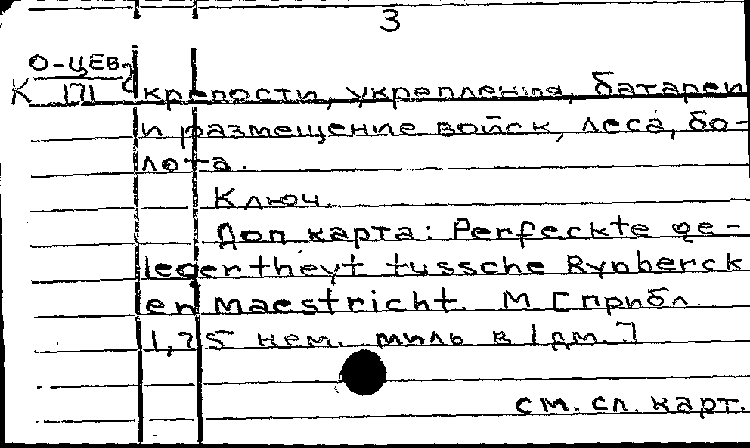 3
О-ЦЕВ-2
К 171
крепости, укрепления, батареи
и размещение войск, леса, бо-
лота.
Ключ.
Доп карта: Perfeckte ge-
legertheyt tussche Rynberck
en Maestricht. М [прибл
1,75 нем. миль в 1 дм.]
см. сл. карт.